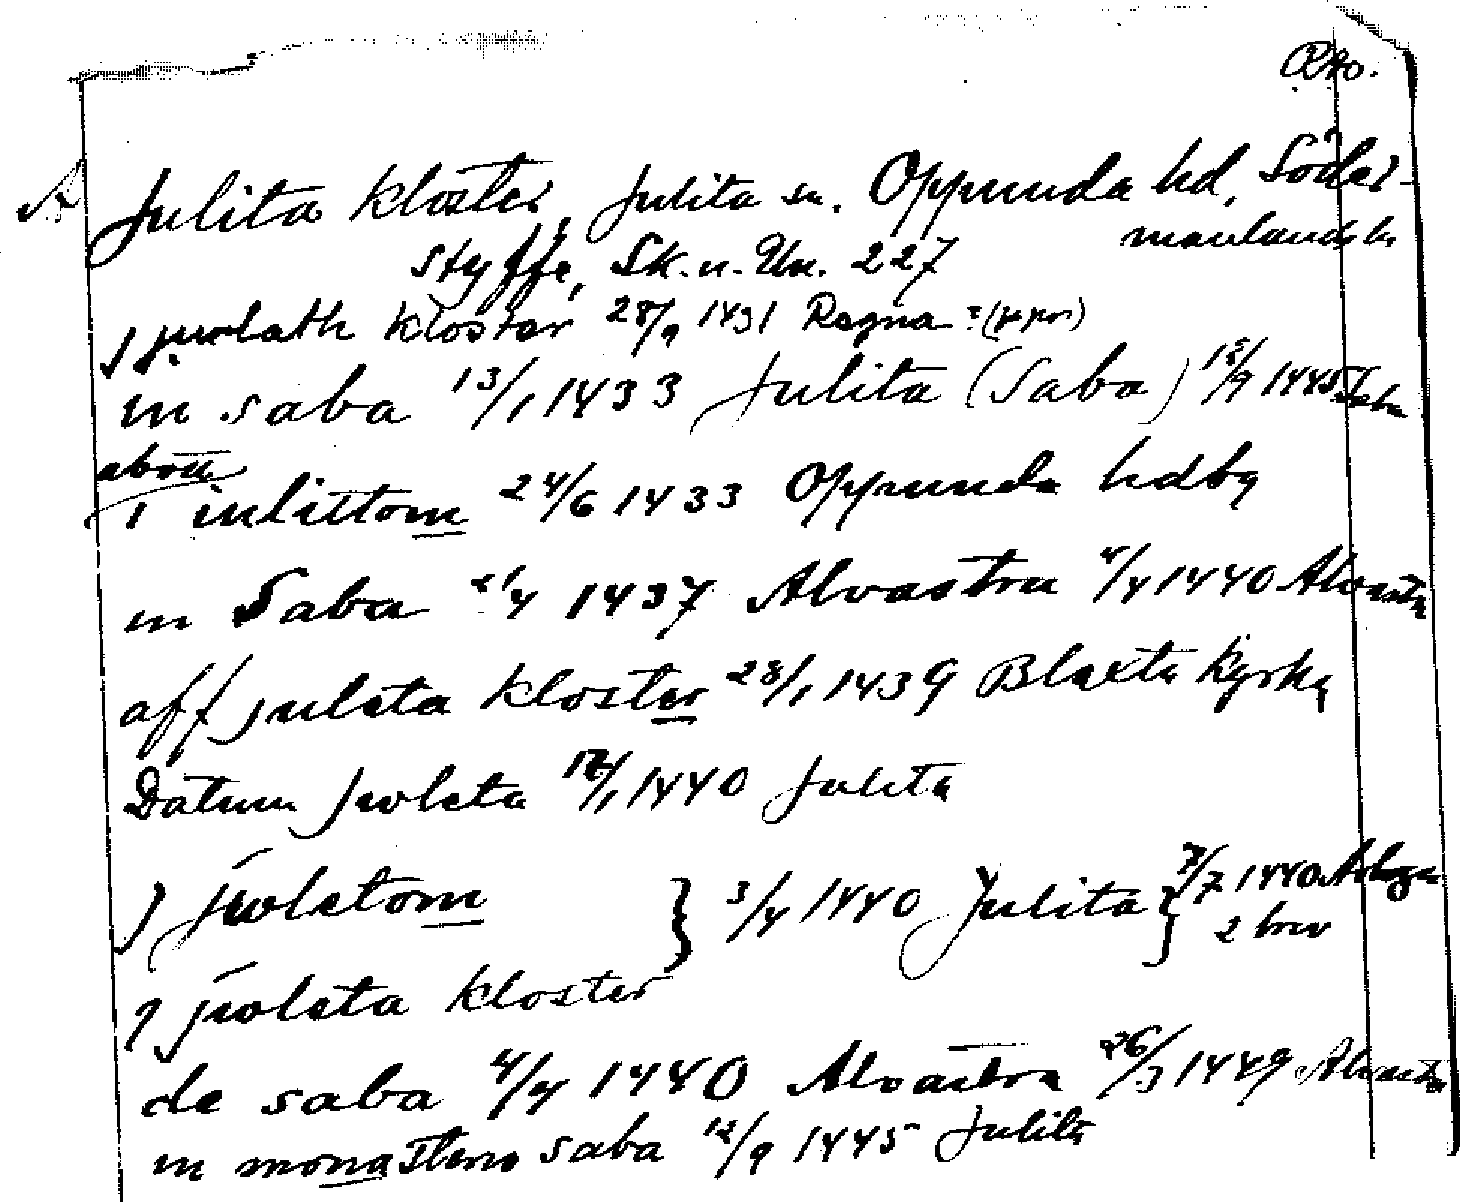 Rko.
Julita kloster, Julita sn. Oppunda hd, Söder-
manlands ln
Styffe, Sk. u. Un. 227
J juolath klostar 28/9 1431 Regna (ppr)
in saba 13/1 1433 Julita (Saba) 12/9 1445 Saba
abott
i iulittom 24/6 1433 Oppunda hdbg
in Saba 21/4 1437 Alvastra 4/4 1440 Alvastra
aff juleta kloster 28/1 1439 Blaxta kyrka
Datum juoleta 17/1 1440 Julita
J juoletom } 3/4 1440 Julita } 7/7 1440 Arboga
2 brev
J juoleta kloster
de saba 4/4 1440 Alvastra 26/3 1449 Alvastra
in monasterio saba 12/9 1445 Julita